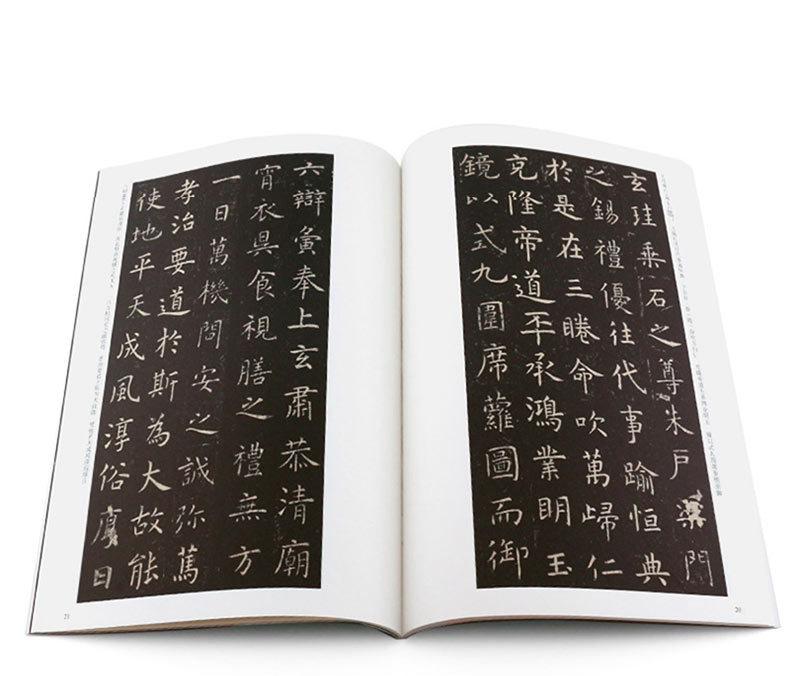 玄珪乘石之尊朱戶渠門
之錫禮優往代事踰恒典
於是在三睠命吹萬歸仁
克隆帝道丕承鴻業明玉
鏡以式九圍席蘿圖而御
20
六辯夤奉上玄肅恭清廟
宵衣昃食視膳之禮無方
一日萬機問安之誠弥篤
孝治要道於斯為大故能
使地平天成風淳俗厚日
21